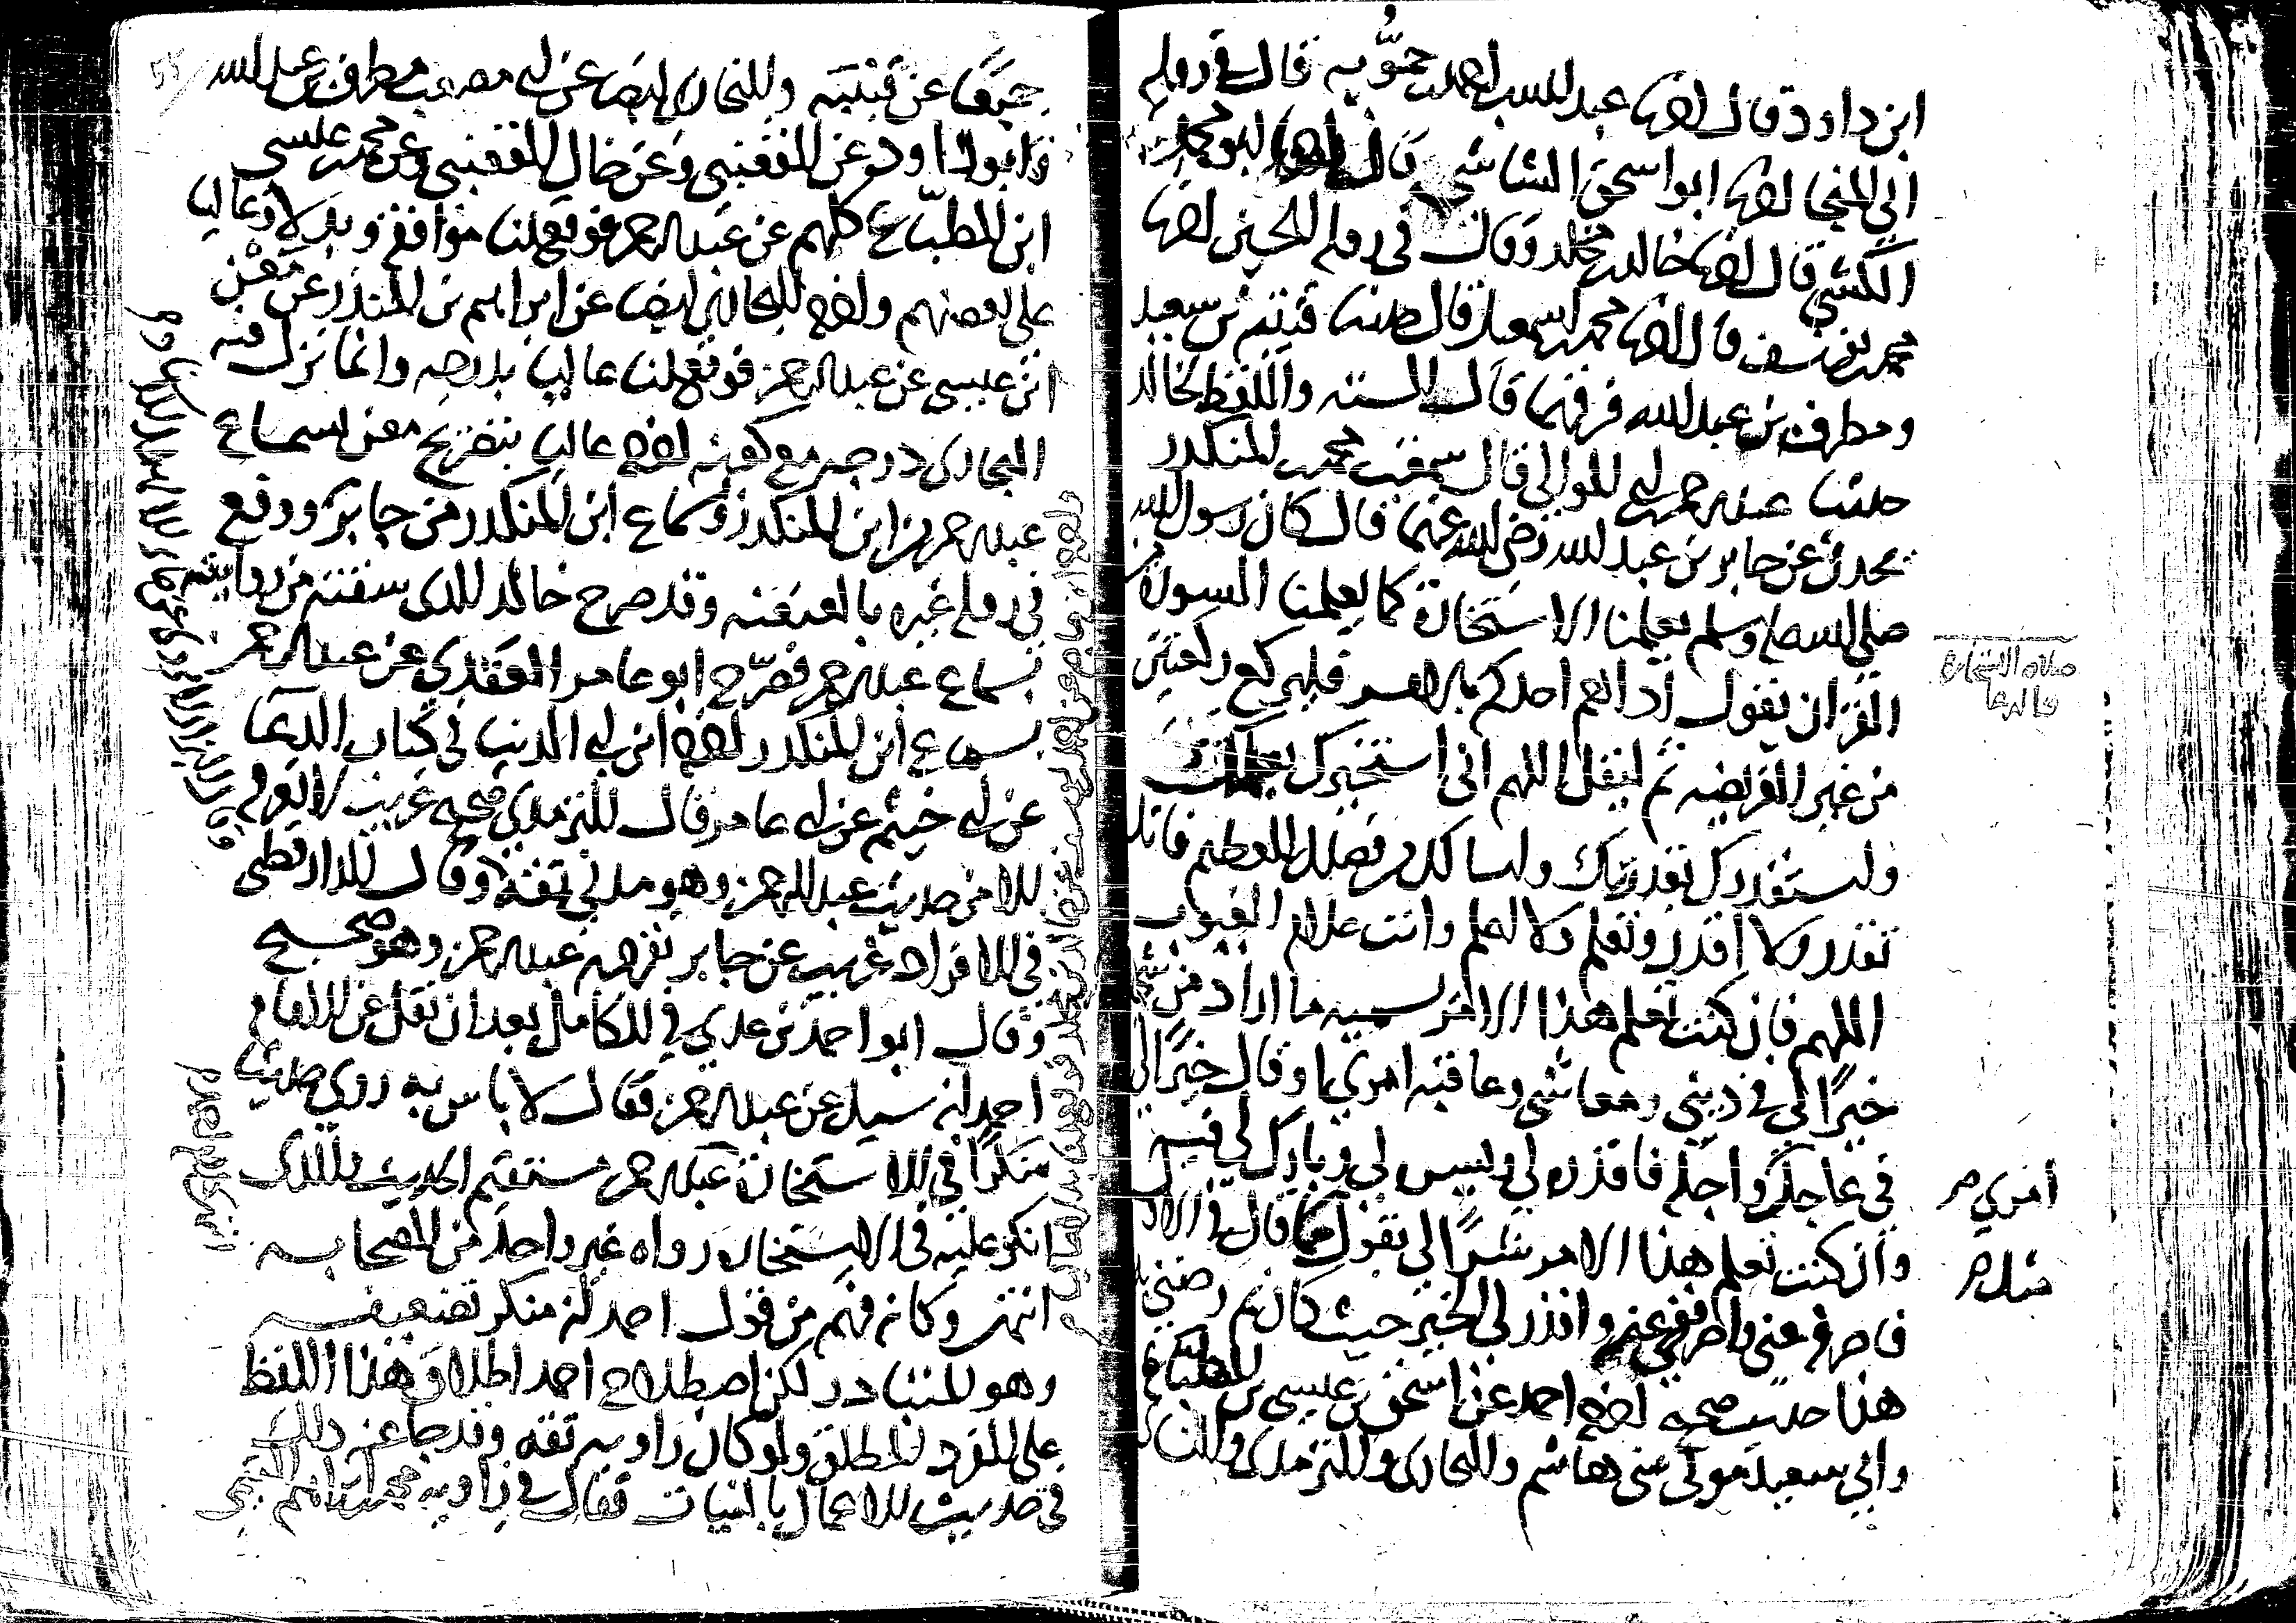 ابن داود قال انا عبد الله بن احمد بن حمويه قال في رواية
ابن المنجا انا ابو اسحق الشاشي قال انا ابو محمد
الكشي قال انا خالد بن مخلد وقال في رواية
محمد بن يوسف قال انا محمد بن اسمعيل قال حدثنا قتيبة بن سعيد
ومطرف بن عبد الله فرقهما قال الستة واللفظ لخالد
حدثنا عبد الرحمن بن ابي الموالي قال سمعت محمد بن المنكدر
يحدث عن جابر بن عبد الله رضي الله عنهما قال كان رسول الله
صلى الله عليه وسلم يعلمنا الاستخارة كما يعلمنا السورة من
القران يقول اذا هم احدكم بالامر فليركع ركعتين
من غير الفريضة ثم ليقل اللهم اني استخيرك بعلمك
واستقدرك بقدرتك واسالك من فضلك العظيم فانك
تقدر ولا اقدر وتعلم ولا اعلم وانت علام الغيوب
اللهم فان كنت تعلم هذا الامر يسميه ما اراد من شي
خيرًا لي في ديني ومعاشي وعاقبة امري او قال خيرًا لي
في عاجل وآجله فاقدره لي ويسره لي وبارك لي فيه
وان كنت تعلم هذا الامر شرًا لي يقول كما قال في الاول
فاصرفه عني واصرفني عنه واقدر لي الخير حيث كان ثم رضني به
هذا حديث صحيح اخرجه احمد عن اسحق بن عيسى بن الطباع
وابي سعيد مولى بني هاشم والبخاري والترمذي والنسائي
صلاة الاستخارة
والدعا
امري صح
مثل صح
جميعًا عن قتيبة والبخاري ايضا عن ابي مصعب مطرف بن عبد الله
وابو داود عن القعنبي وعن خال القعنبي وعن محمد بن عيسى
ابن الطباع كلهم عن عبد الرحمن فوقع لنا موافقة وبدلا وعاليا
على بعضهم واخرجه البخاري ايضا عن ابراهيم بن المنذر عن معن
ابن عيسى عن عبد الرحمن فوقع لنا عاليا بدرجة وانما نزل فيه
البخاري درجة مع كونه اخرجه عاليا بتصريح معن بسماع
عبد الرحمن من ابن المنكدر وسماع ابن المنكدر من جابر ووقع
في رواية غيره بالعنعنة وقد صرح خالد الذي سقته من روايته
بسماع عبد الرحمن فصرّح ابو عامر العقدي عن عبد الرحمن
بسماع ابن المنكدر اخرجه ابن ابي الدنيا في كتاب الدعا
عن ابي خيثم عن ابي عامر قال الترمذي صحيح غريب لا نعرفه
الا من حديث عبد الرحمن وهو مدني ثقة وقال الدارقطني
في الافراد غريب عن جابر تفرد به عبد الرحمن وهو صحيح
وقال ابو احمد بن عدي في الكامل بعد ان نقل عن الامام
احمد انه سيل عن عبد الرحمن فقال لا باس به روى حديثا
منكرًا في الاستخارة عبد الرحمن مستقيم الحديث والذي
انكر عليه في الاستخارة رواه غير واحد من الصحابة
انتهى وكانه فهم من قول احمد انه منكر تضعيفه
وهو المتبادر لكن اصطلاح احمد اطلاق هذا اللفظ
على الفرد المطلق ولو كان راويه ثقة وقد جا عنه ذلك
في حديث الاعمال بالنيات فقال في راويه محمد بن ابراهيم التيمي